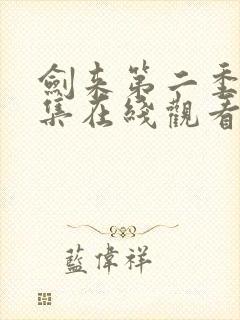 劍来第二季
集在綫觀看
藍偉祥